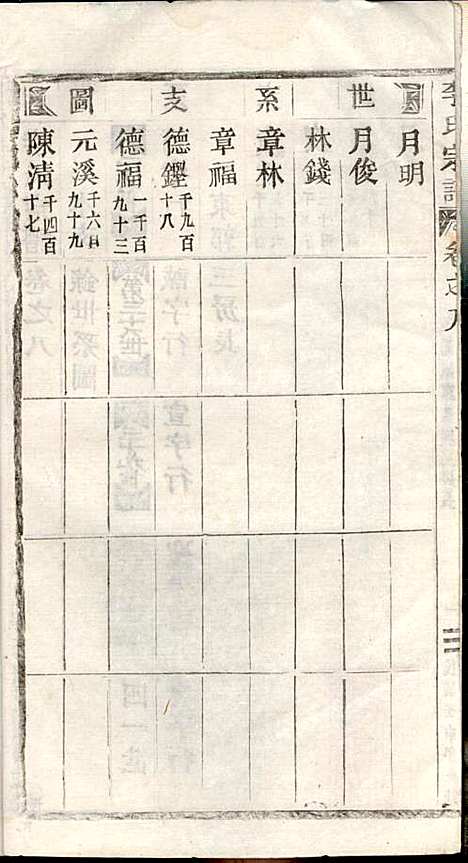 李氏宗譜
卷之八
世系支圖
月明
月俊
林錢
章林
章福
德鏗 千九百十八
德福 一千百九十三
元溪 千六百九十九
陳清 千四百十七